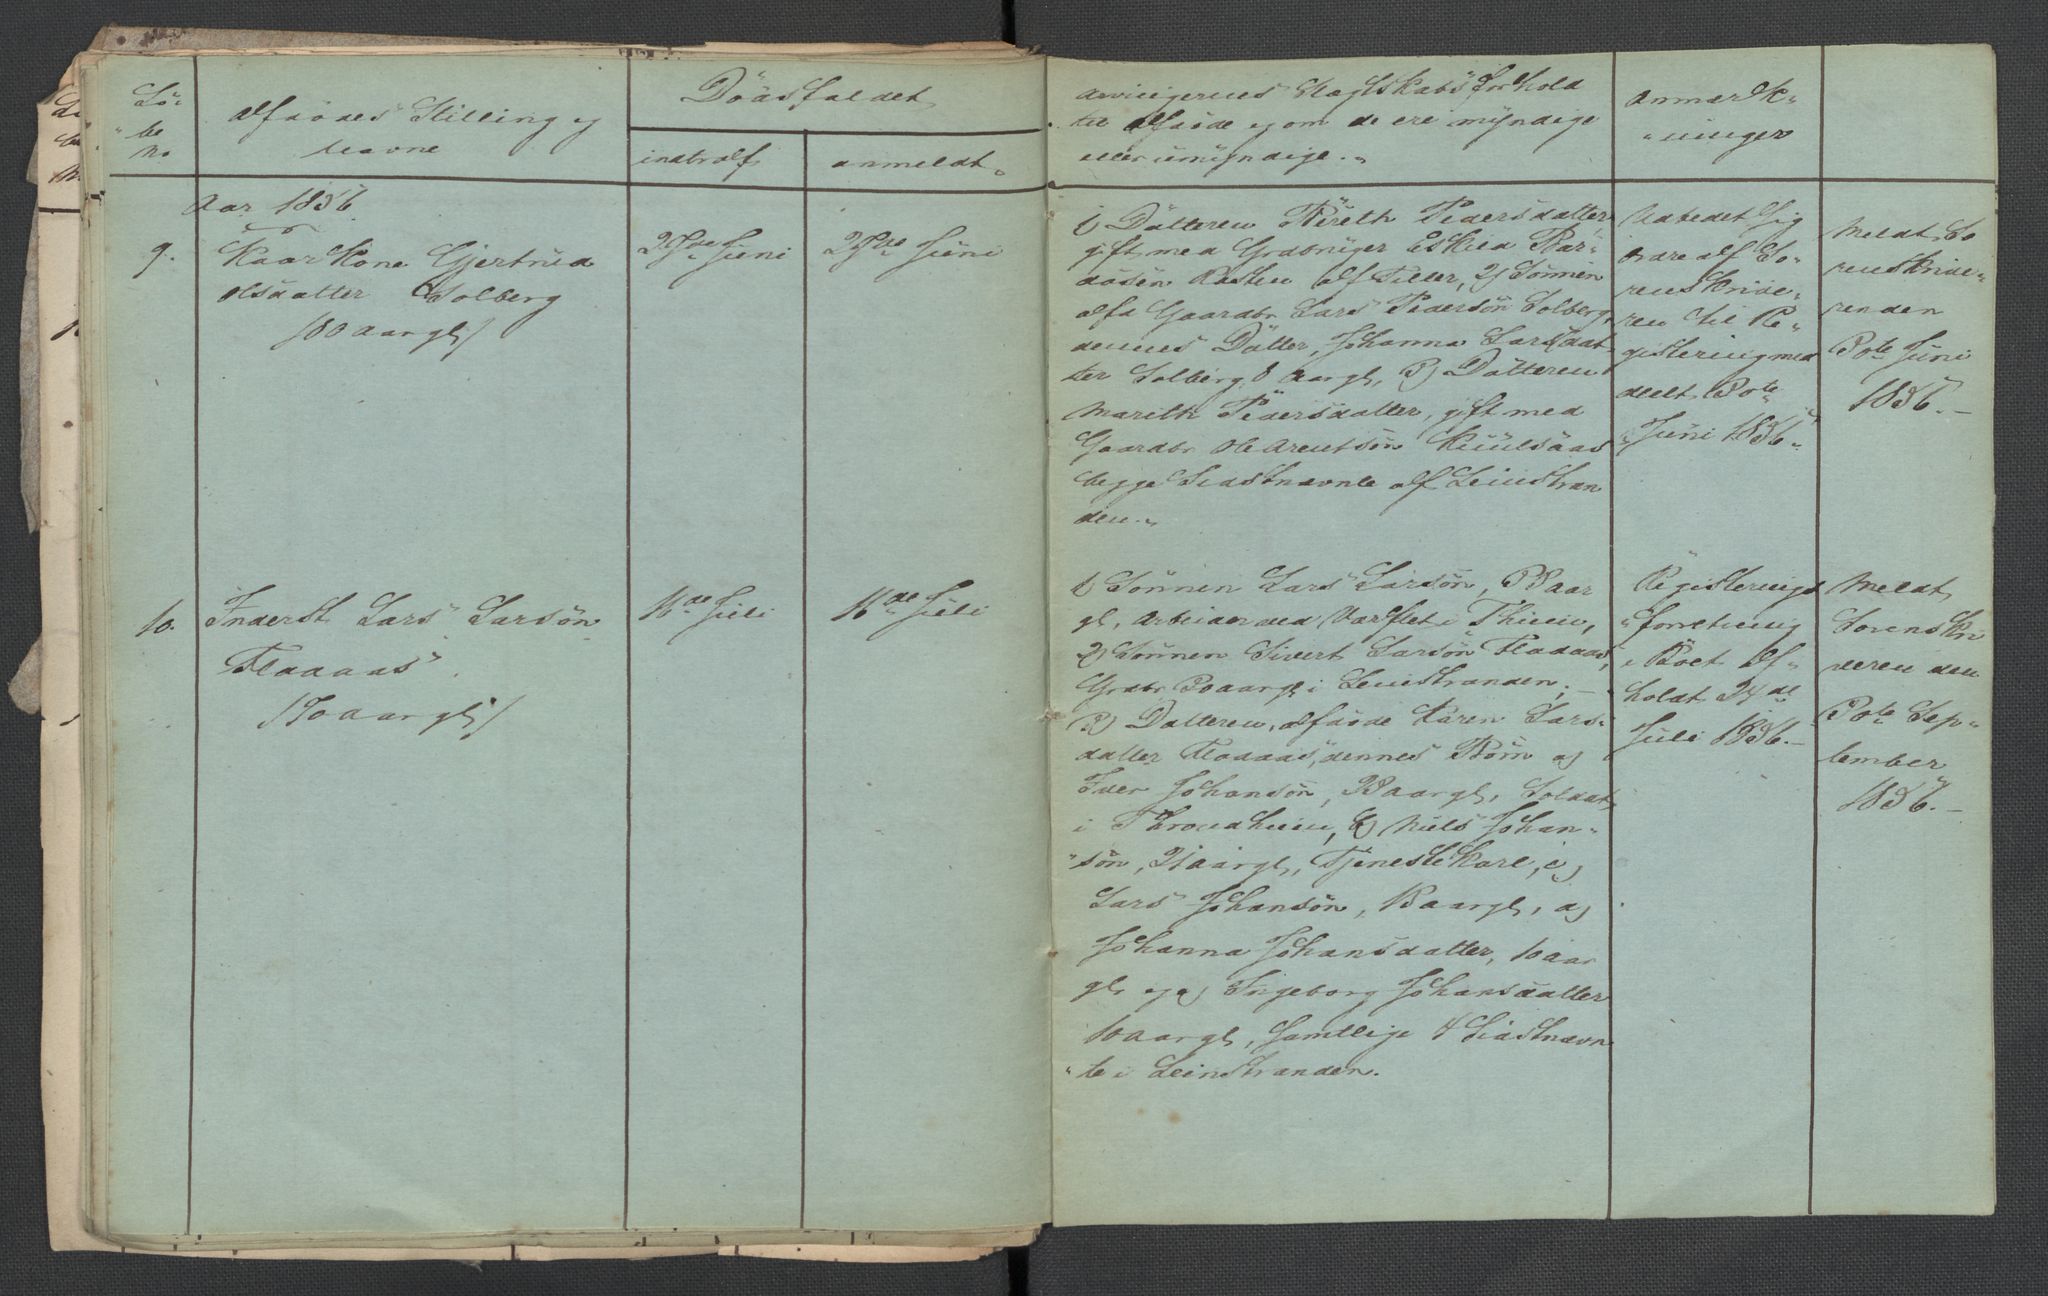 Lö-
be
No
Afdödes Stilling og
Navne
Dödsfaldet
indtraf
anmeldt
Arvingernes Slægtskabsforhold
til Afdöde og om de ere myndige
eller umyndige.
Anmærk-
ninger
Aar 1856
9.
Kaarkone Gjertrud
Olsdatter Solberg
/80 aargl/
Juni
Juni
1) Datteren Sigreth Pedersdatter
gift med Grdbruger Eskild Bar-
dosen Rosten af Tiller, 2) Sönnen
afd Gaardbr Lars Pedersön Solberg,
dennes Datter, Johanna Larsdat-
ter Solberg 8 Aargl, 3) Datteren
Marith Pedersdatter, gift med
Gaardbr Ole Arentsön
begge Sidstnævnte af Leinstran
den.
Udbedet Sig
Svare af So-
renskrive-
ren til Re-
gistering med
deelt 30te
Juni 1856
Meldt So
renskrive-
ren den
30te Juni
1856.-
10.
Inderst Lars Larsön
Flaaaas
/70 aargl/
16de Juli
16de Juli
1) Sönnen Lars Larsön,
gl, Arbeider ved Værftet i Thjem,
2) Sönnen Sivert Larsön Flaaaas,
Grdbr 30 aargl i Leinstranden; -
3) Datteren, afdöde Karen Lars-
datter Flaaaas, dennes Börn a)
Iver Johansön, 23 aargl, Soldat
i Throndhiem, b) Niels Johan-
sön, 21 aargl, Tjenestekarl, c)
Lars Johansön, 13 aargl, d)
Johanna Johansdatter, 16 aar
gl, og e) Ingeborg Johansdatter
10 aargl, Samtlige 4 Sidstnævn
te i Leinstranden.
Registerings
forretning
i Boet Af-
holdt 24de
Juli 1856.-
Meldt
Sorenskri
veren den
30te Sep-
tember
1856.-